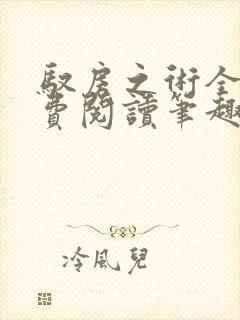 馭房之術全
費閱讀筆趣
冷風兒